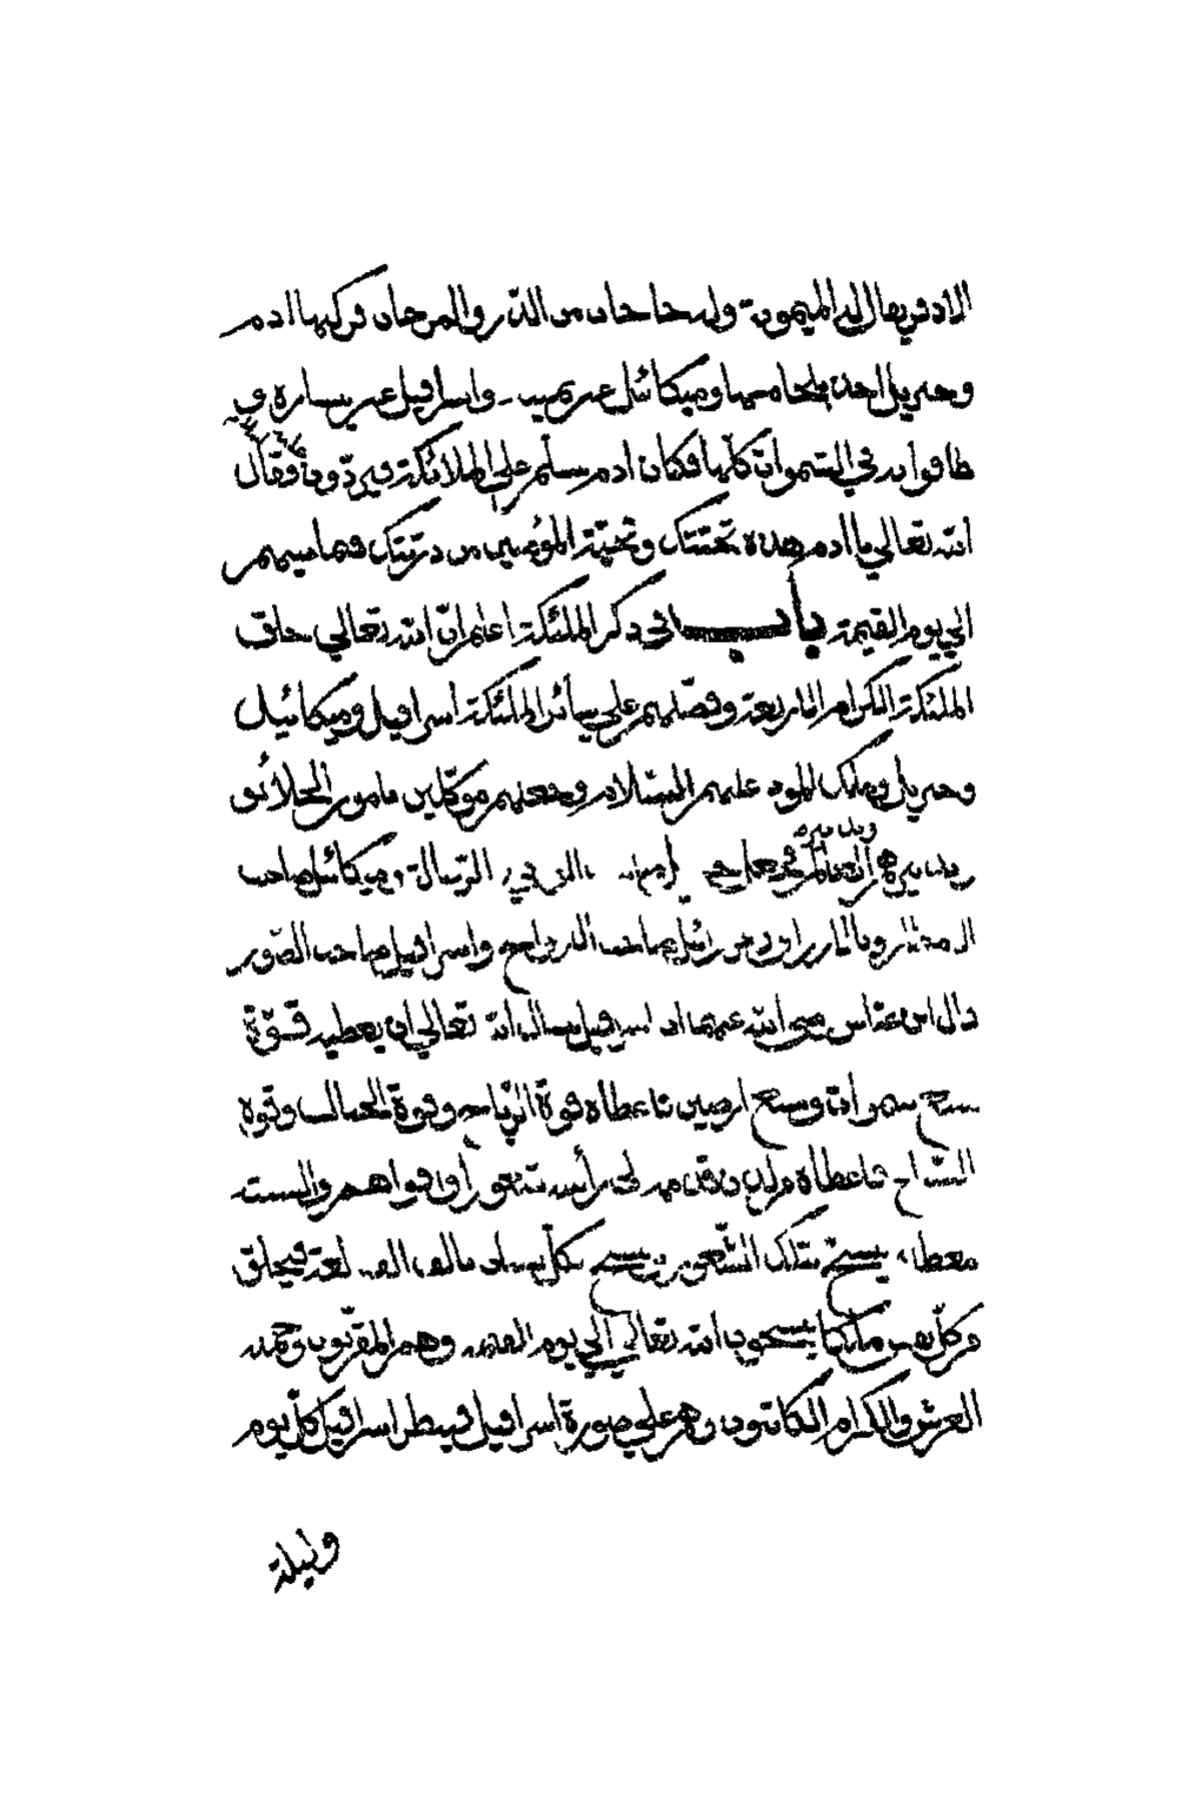 الاذفر يقال له الميمونة وله جناحان من الدّر والمرجان فركبها ادم
وجبريل اخذ بلجامها وميكائيل عن يمينه واسرافيل عن يساره و
طافوا به في السّموات كلّها فكان ادم يسلّم على الملائكة فيردّون فقال
الله تعالي يا ادم هذه تحيّتك وتحيّة المؤمنين من ذرّيّتك فيما بينهم
الي يوم القيمة باب في ذكر الملئكة اعلم انّ الله تعالي خلق
الملئكة الكرام الاربعة وفضّلهم علي سائر الملئكة اسرافيل وميكائيل
وجبريل وملك الموت عليهم السّلام وجعلهم موكّلين بامور الخلائق
وتدبيره العالم فجعل صاحب الوحي والرّسالة وميكائيل صاحب
الامطار والارزاق وعزرائيل صاحب الارواح واسرافيل صاحب الصّور
قال ابن عبّاس رضي الله عنهما انّ اسرافيل سال الله تعالي ان يعطيه قوّة
سبع سموات وسبع ارضين فاعطاه قوة الرّياح وقوة الجبال وقوة
السّباع فاعطاه من لدن قدميه الي رأسه شعورا وافواها والسنة
مغطاة يسبّح بتلك الشّعور يسبح بكلّ لسان بالف الف لغة فيخلق
من كلّ نفس ملكا يسبّحون الله تعالي الي يوم القيمة وهم المقرّبون وحملة
العرش والكرام الكاتبون وهم علي صورة اسرافيل فينظر اسرافيل كلّ يوم
وليلة